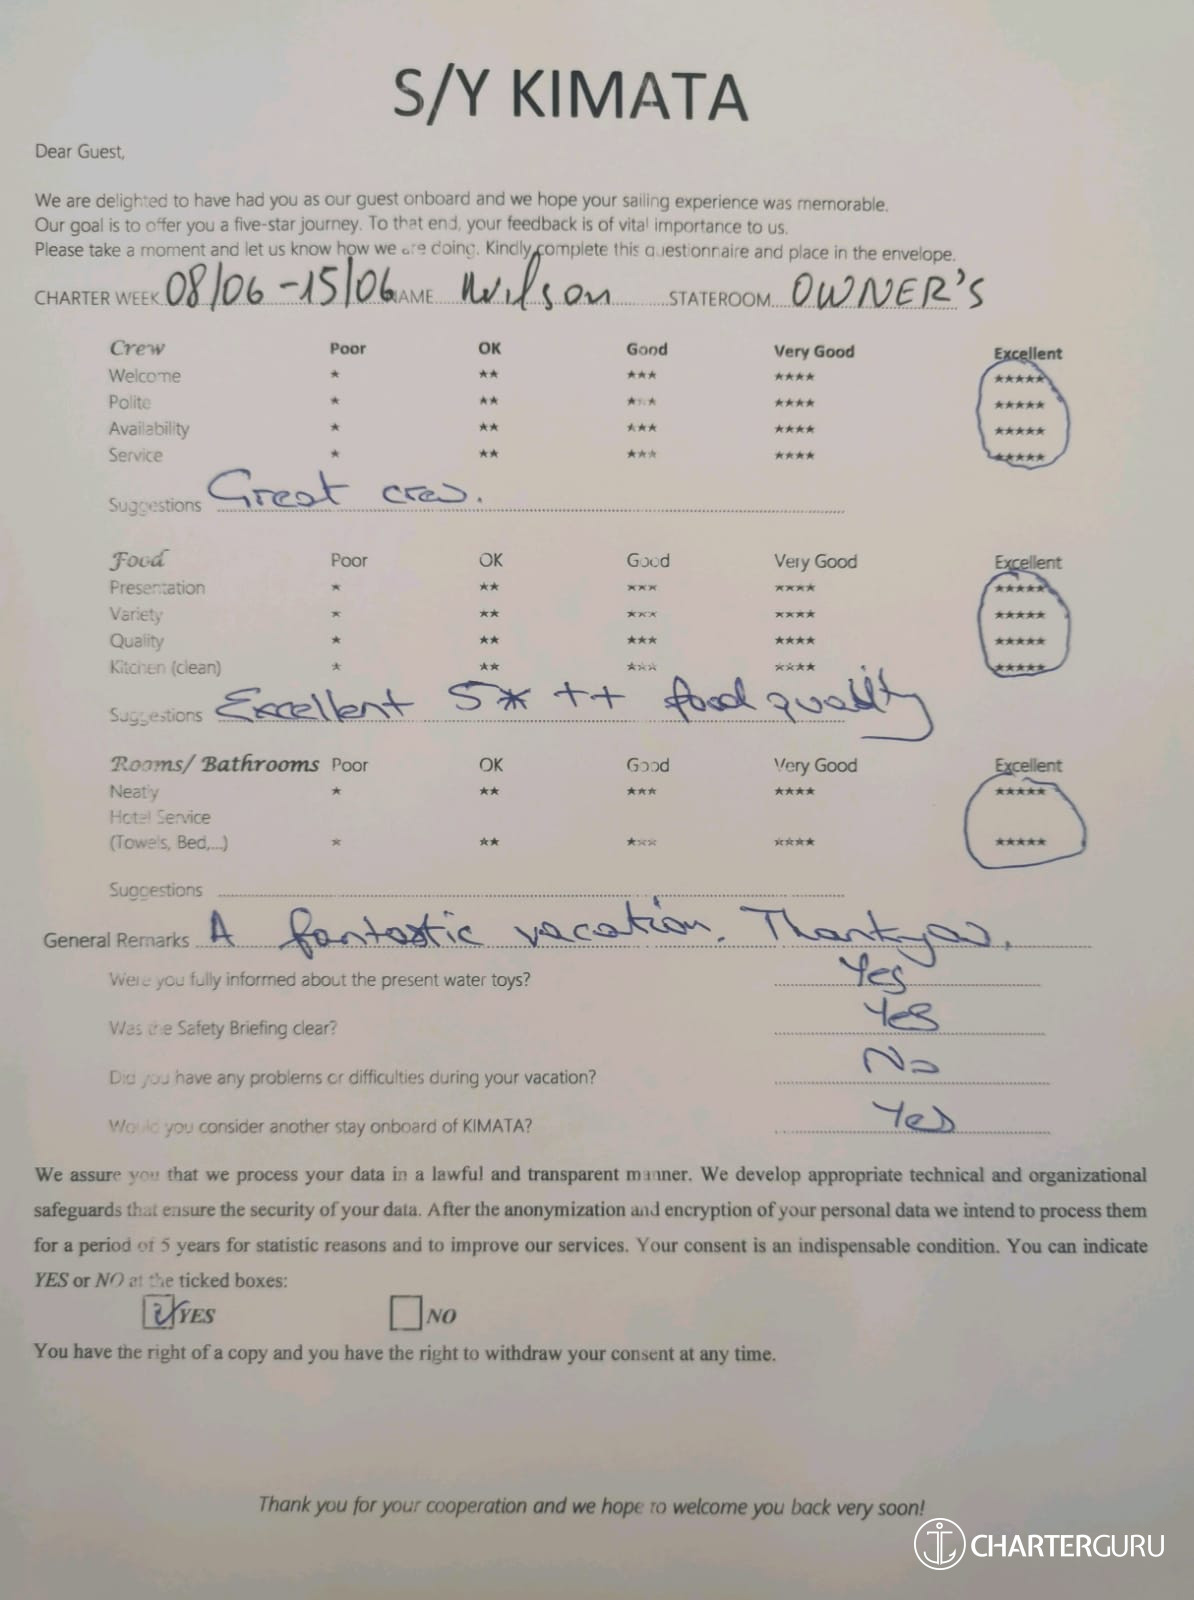 S/Y KIMATA
Dear Guest,
We are delighted to have had you as our guest onboard and we hope your sailing experience was memorable.
Our goal is to offer you a five-star journey. To that end, your feedback is of vital importance to us.
Please take a moment and let us know how we are doing. Kindly complete this questionnaire and place in the envelope.
CHARTER WEEK 08/06-15/06 NAME Wilson STATEROOM OWNER'S
Crew Poor OK Good Very Good Excellent
Welcome * ** *** **** *****
Polite * ** *** **** *****
Availability * ** *** **** *****
Service * ** *** **** *****
Suggestions Great crew.
Food Poor OK Good Very Good Excellent
Presentation * ** *** **** *****
Variety * ** *** **** *****
Quality * ** *** **** *****
Kitchen (clean) * ** *** **** *****
Suggestions Excellent 5* ++ food quality
Rooms/ Bathrooms Poor OK Good Very Good Excellent
Neatly * ** *** **** *****
Hotel Service
(Towels, Bed,...) * ** *** **** *****
Suggestions
General Remarks A fantastic vacation. Thankyou.
Were you fully informed about the present water toys? Yes
Was the Safety Briefing clear? Yes
Did you have any problems or difficulties during your vacation? No
Would you consider another stay onboard of KIMATA? Yes
We assure you that we process your data in a lawful and transparent manner. We develop appropriate technical and organizational
safeguards that ensure the security of your data. After the anonymization and encryption of your personal data we intend to process them
for a period of 5 years for statistic reasons and to improve our services. Your consent is an indispensable condition. You can indicate
YES or NO at the ticked boxes:
YES NO
You have the right of a copy and you have the right to withdraw your consent at any time.
Thank you for your cooperation and we hope to welcome you back very soon!
CHARTERGURU